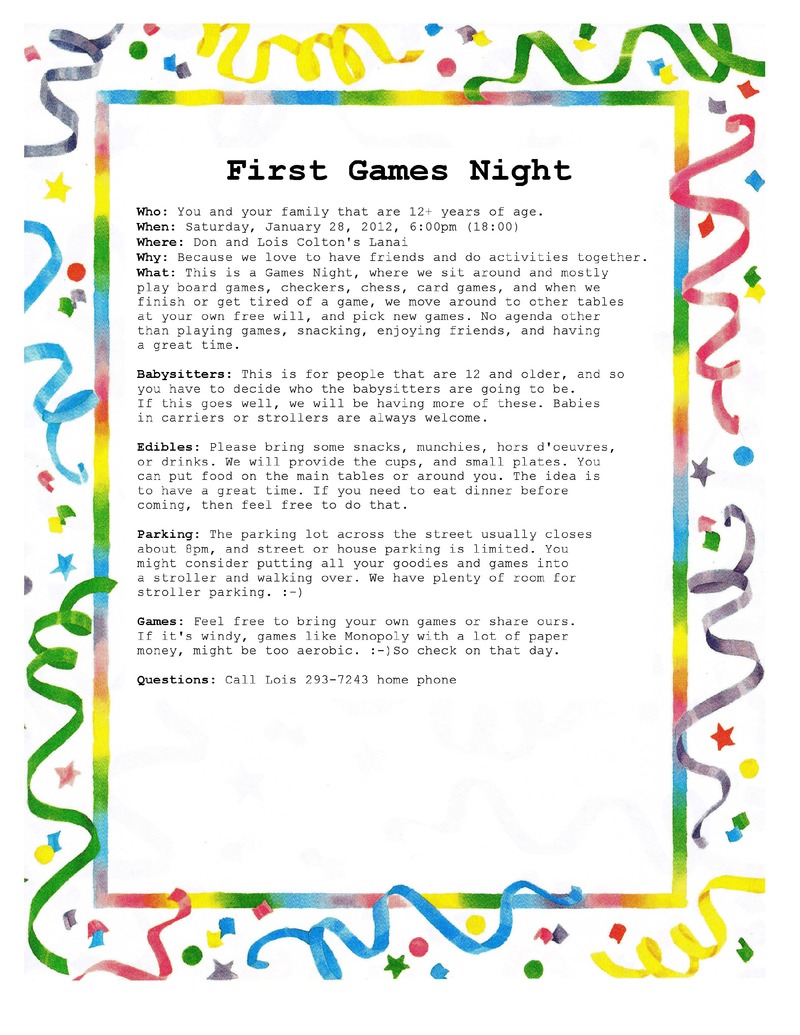 First Games Night
Who: You and your family that are 12+ years of age.
When: Saturday, January 28, 2012, 6:00pm (18:00)
Where: Don and Lois Colton's Lanai
Why: Because we love to have friends and do activities together.
What: This is a Games Night, where we sit around and mostly
play board games, checkers, chess, card games, and when we
finish or get tired of a game, we move around to other tables
at your own free will, and pick new games. No agenda other
than playing games, snacking, enjoying friends, and having
a great time.
Babysitters: This is for people that are 12 and older, and so
you have to decide who the babysitters are going to be.
If this goes well, we will be having more of these. Babies
in carriers or strollers are always welcome.
Edibles: Please bring some snacks, munchies, hors d'oeuvres,
or drinks. We will provide the cups, and small plates. You
can put food on the main tables or around you. The idea is
to have a great time. If you need to eat dinner before
coming, then feel free to do that.
Parking: The parking lot across the street usually closes
about 8pm, and street or house parking is limited. You
might consider putting all your goodies and games into
a stroller and walking over. We have plenty of room for
stroller parking. :-)
Games: Feel free to bring your own games or share ours.
If it's windy, games like Monopoly with a lot of paper
money, might be too aerobic. :-)So check on that day.
Questions: Call Lois 293-7243 home phone